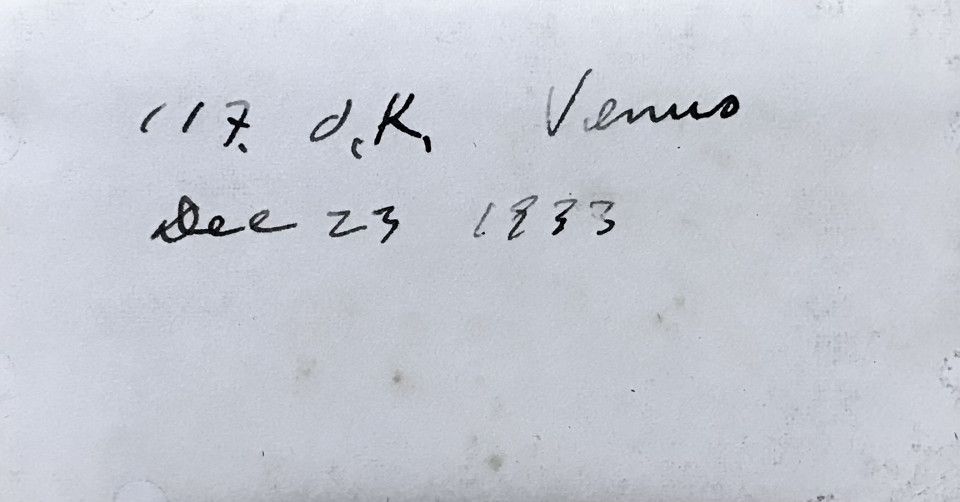 117. O.K. Venus
Dec 23 1933